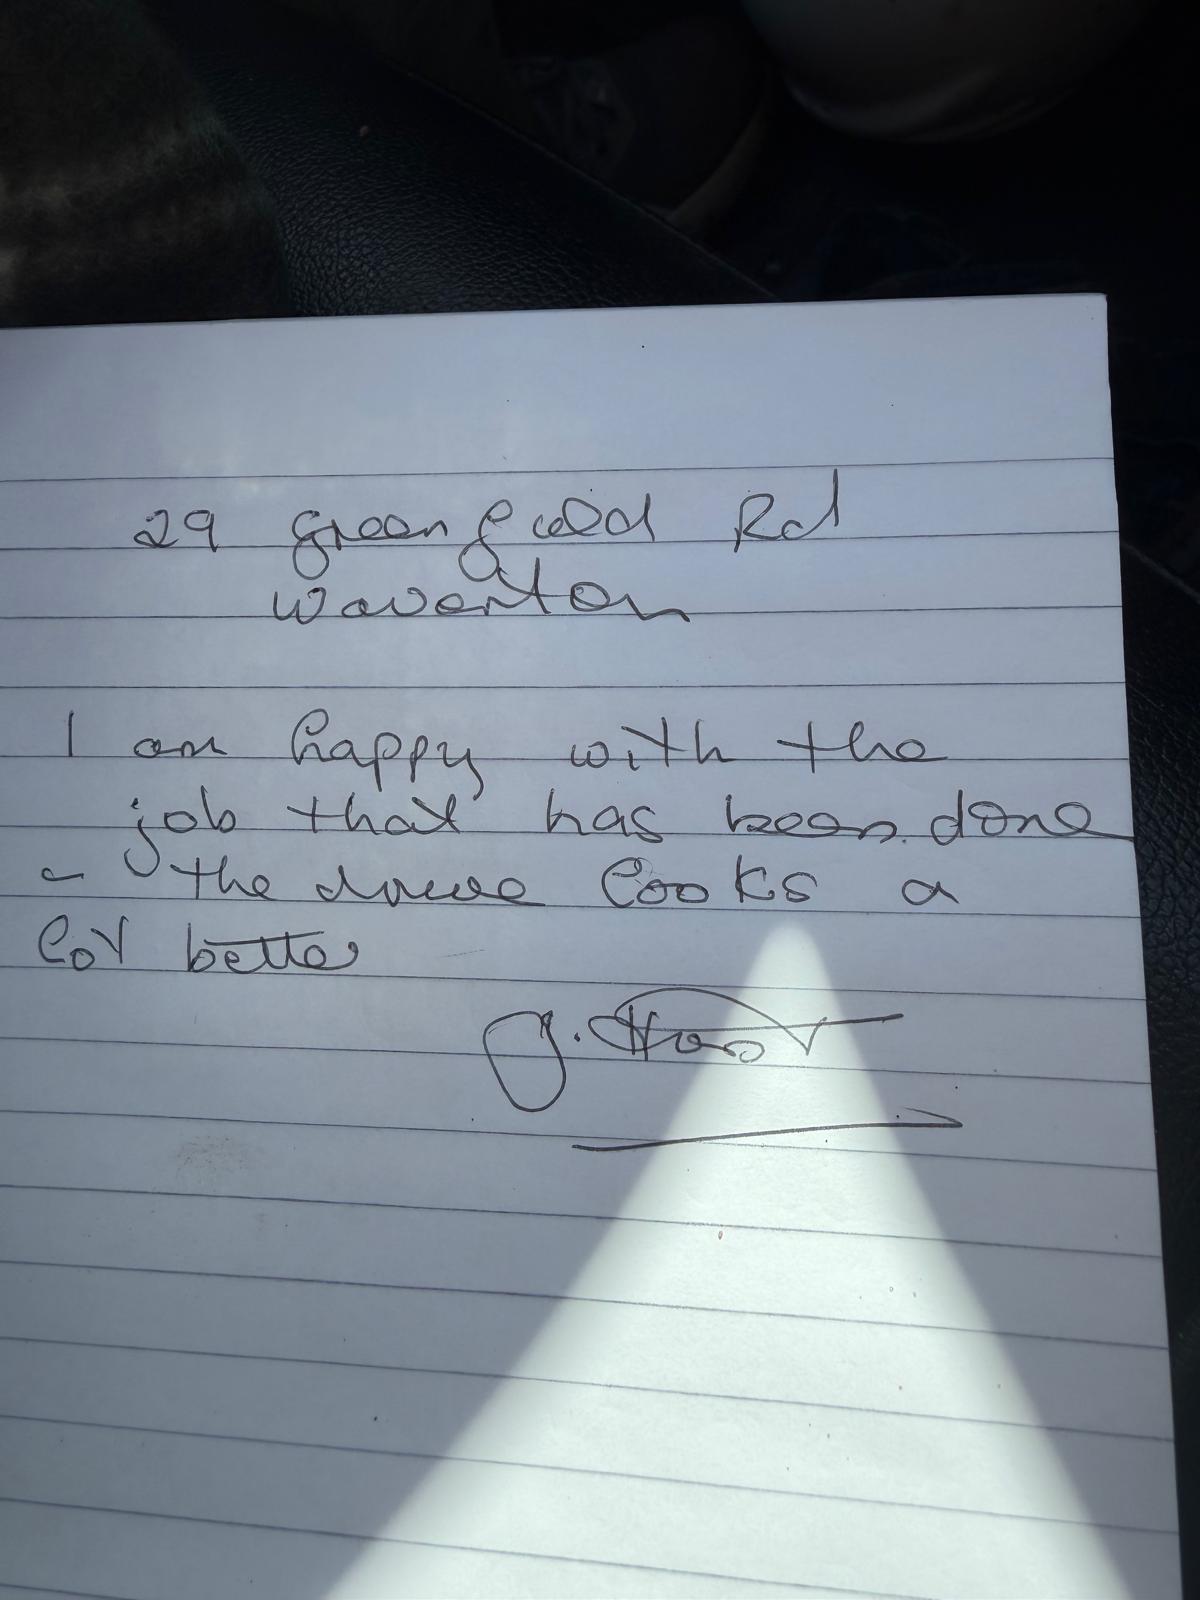 29 Greenfield Rd
Waverton
I am happy with the
job that has been done
- the drive looks a
lot better
J.